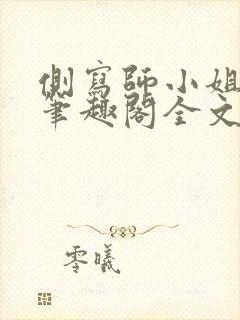 側寫師小姐
筆趣閣全文
零曦